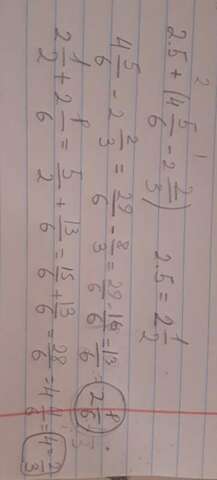 2 1
2.5 + (4 5/6 - 2 2/3) 2.5 = 2 1/2
4 5/6 - 2 2/3 = 29/6 - 8/3 = 29/6 - 16/6 = 13/6 = 2 1/6
2 1/2 + 2 1/6 = 5/2 + 13/6 = 15/6 + 13/6 = 28/6 = 4 4/6 = 4 2/3